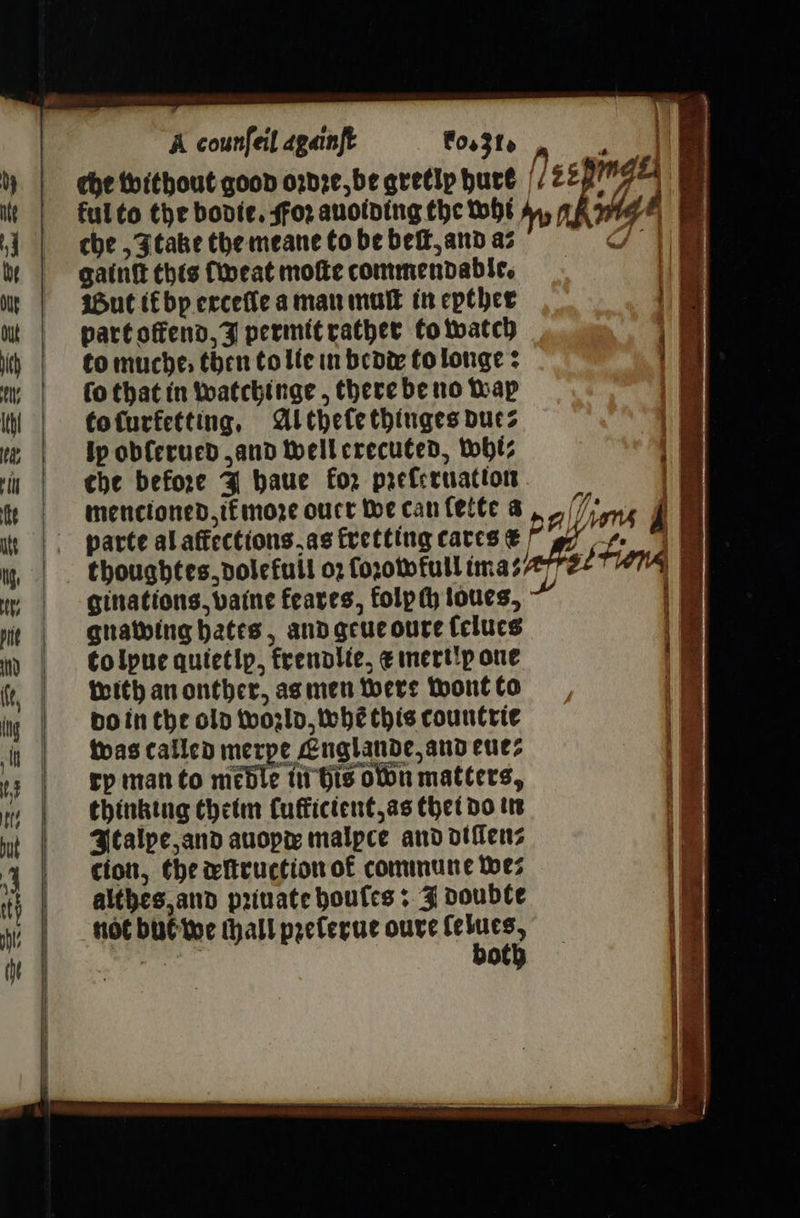 A counſeil againſt Fo.31.
che without good ordre, be gretly hurt
ful to the bodie. For auoiding the whi
che, I take the meane to be beſt, and a⸗
gainſt this ſweat moſte commendable.
But if by exceſſe a man muſt in eyther
part offend, I permit rather to watch
to muche, then to lie in bedde to longe:
ſo that in watchinge, there be no way
to ſurfetting. Al theſe thinges due⸗
ly obſerued, and well executed, whi⸗
che before I haue for preſeruation
mencioned, if more ouer we can ſette a
parte al affections, as fretting cares &
thoughtes, dolefull or ſorowfull ima⸗
ginations, vaine feares, folyſh loues,
gnawing hates, and geue oure ſelues
to lyue quietly, frendlie, & merily one
with an onther, as men were wont to
do in the old world, whē this countrie
was called merye Englande, and eue⸗
ry man to medle in his own matters,
thinking theim ſufficient, as thei do in
Italye, and auoyde malyce and diſſen⸗
cion, the deſtruction of commune we⸗
althes, and priuate houſes: I doubte
not but we ſhall preſerue oure ſelues,
both